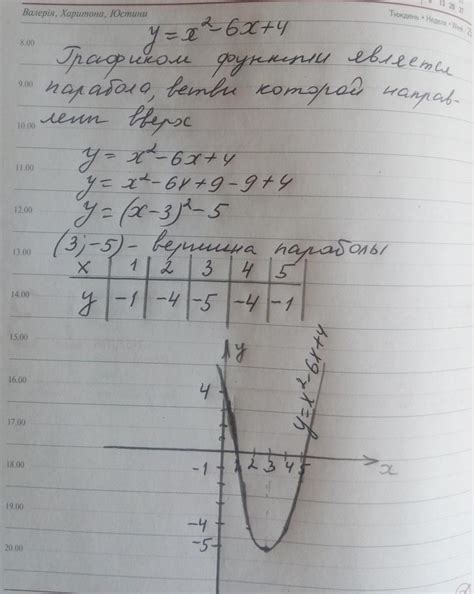 Валерія, Харитона, Юстини
Тиждень • Неделя •
y = x² - 6x + 4
8.00
Графиком функции является
9.00
парабола, ветви которой направ-
10.00
лены вверх
y = x² - 6x + 4
11.00
y = x² - 6x + 9 - 9 + 4
12.00
y = (x - 3)² - 5
(3; -5) - вершина параболы
13.00
x | 1 | 2 | 3 | 4 | 5
14.00
y | -1 | -4 | -5 | -4 | -1
15.00
y
16.00
4
y = x² - 6x + 4
17.00
18.00
-1 1 2 3 4 5 x
19.00
-4
20.00
-5